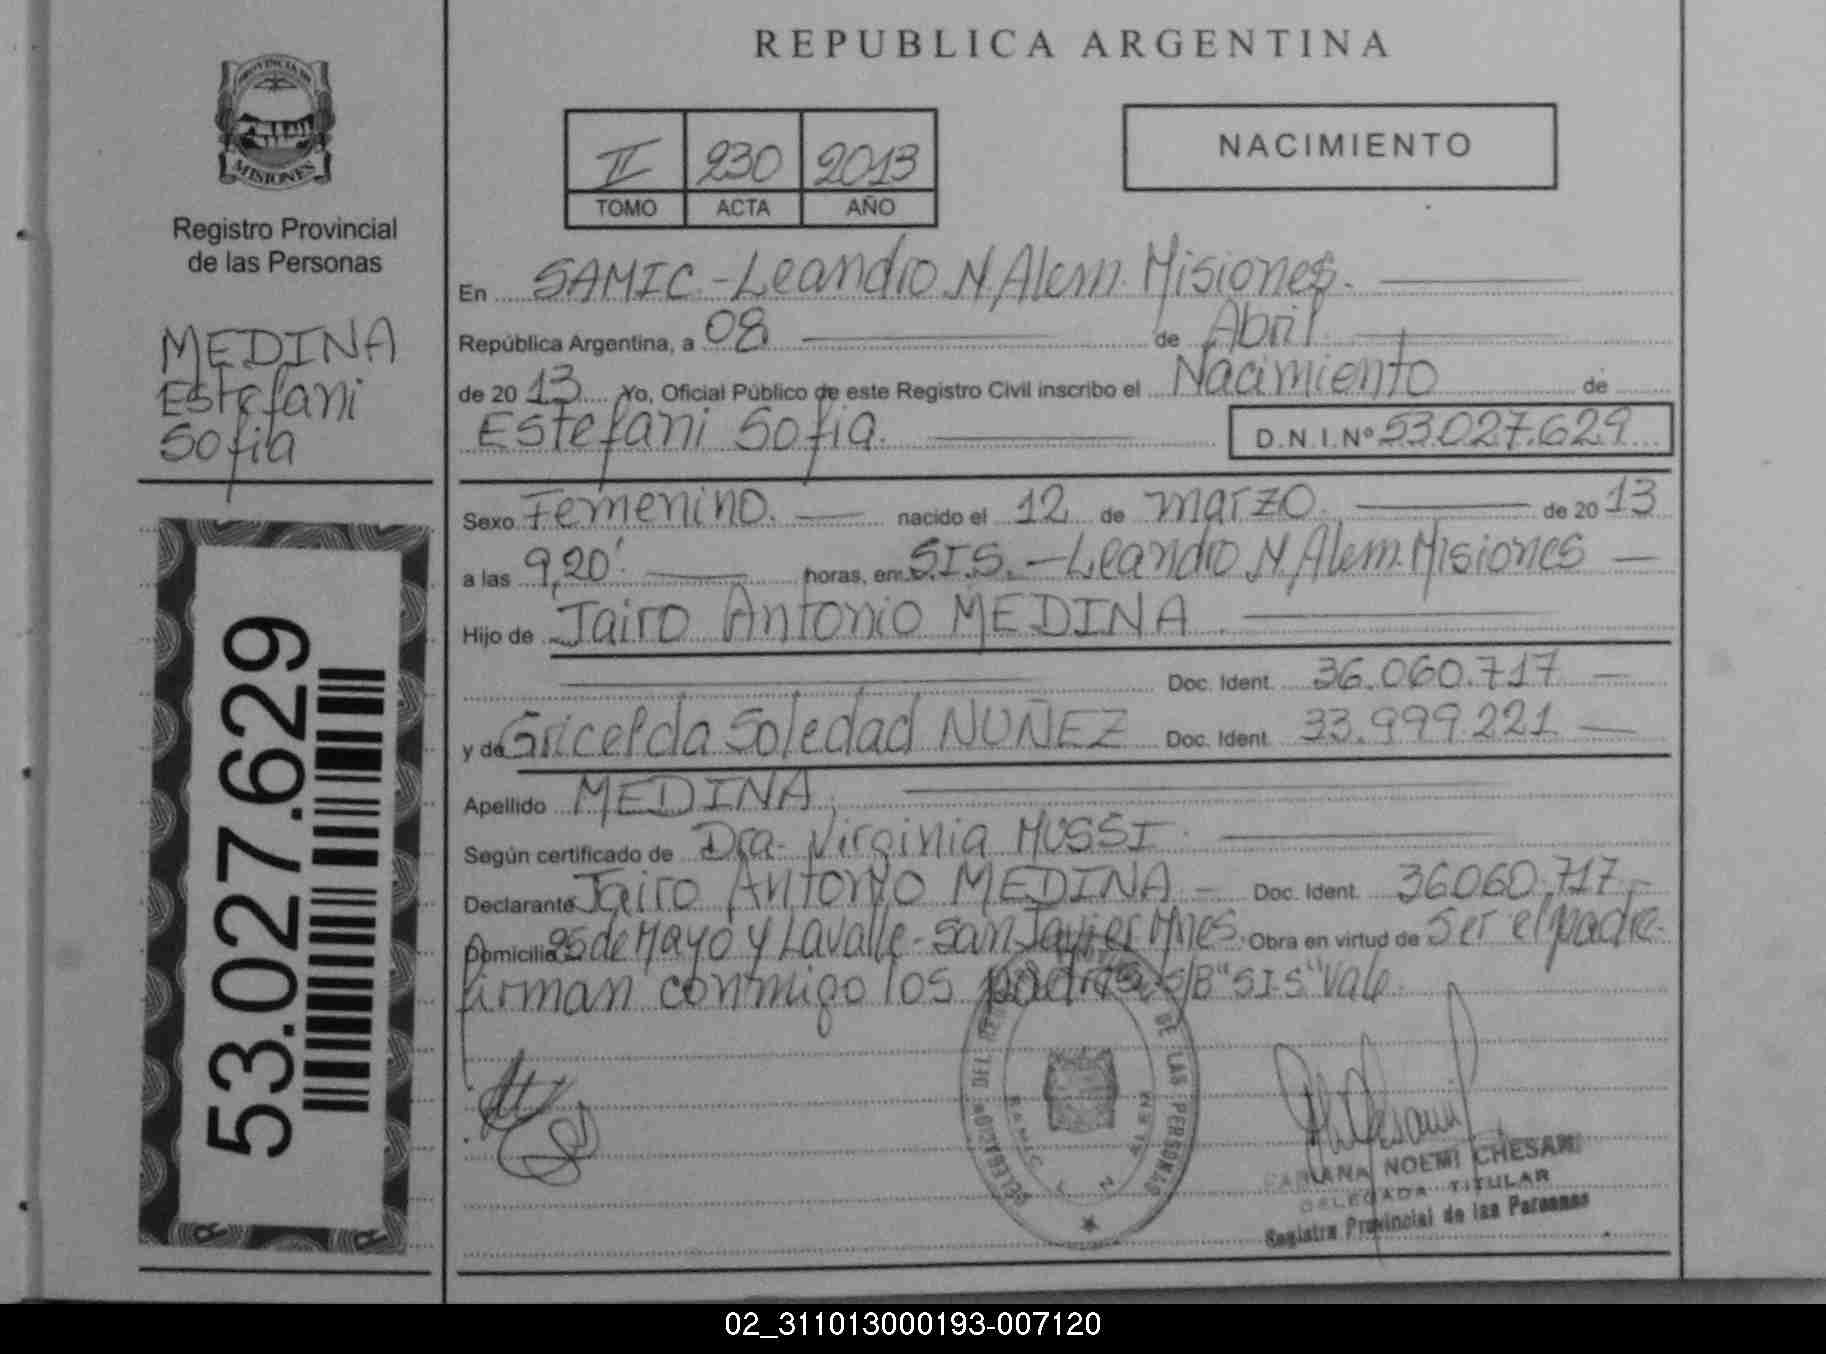 REPUBLICA ARGENTINA
PROVINCIA DE
MISIONES
Registro Provincial
de las Personas
MEDINA
Estefani
Sofia
53.027.629
II 230 2013
TOMO ACTA AÑO
NACIMIENTO
En SAMIC.-Leandro N. Alem. Misiones.
República Argentina, a 08 de Abril
de 20 13 Yo, Oficial Público de este Registro Civil inscribo el Nacimiento de
Estefani Sofia. D.N.I.Nº 53.027.629
Sexo Femenino. nacido el 12 de marzo. de 20 13
a las 9,20' horas, en S.I.S.-Leandro N. Alem. Misiones
Hijo de Jairo Antonio MEDINA
Doc. Ident. 36.060.717
y de Gricelda Soledad NUÑEZ Doc. Ident. 33.999.221
Apellido MEDINA
Según certificado de Dra. Virginia MUSSI
Declarante Jairo Antonio MEDINA - Doc. Ident. 36060.717-
Domicilio 25 de Mayo y Lavalle-San Javier Mnes. Obra en virtud de ser el padre.
firman conmigo los padres S/B "S.I.S" Vale.
DE LAS PERSONAS
SAMIC
NOEMI CHESANI
DELEGADA TITULAR
Registro Provincial de las Personas
02_311013000193-007120